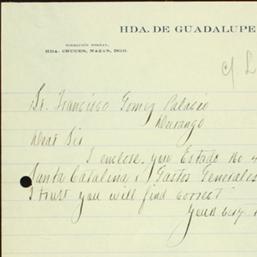 HDA. DE GUADALUPE
DIRECCIÓN POSTAL,
HDA. CRUCES, NAZAS, DGO.
c/ L
Sr. Francisco Gomez Palacio
Durango
Dear Sir
I enclose you Estado No 4
Santa Catalina & Gastos Generales
I trust you will find correct
Yours very